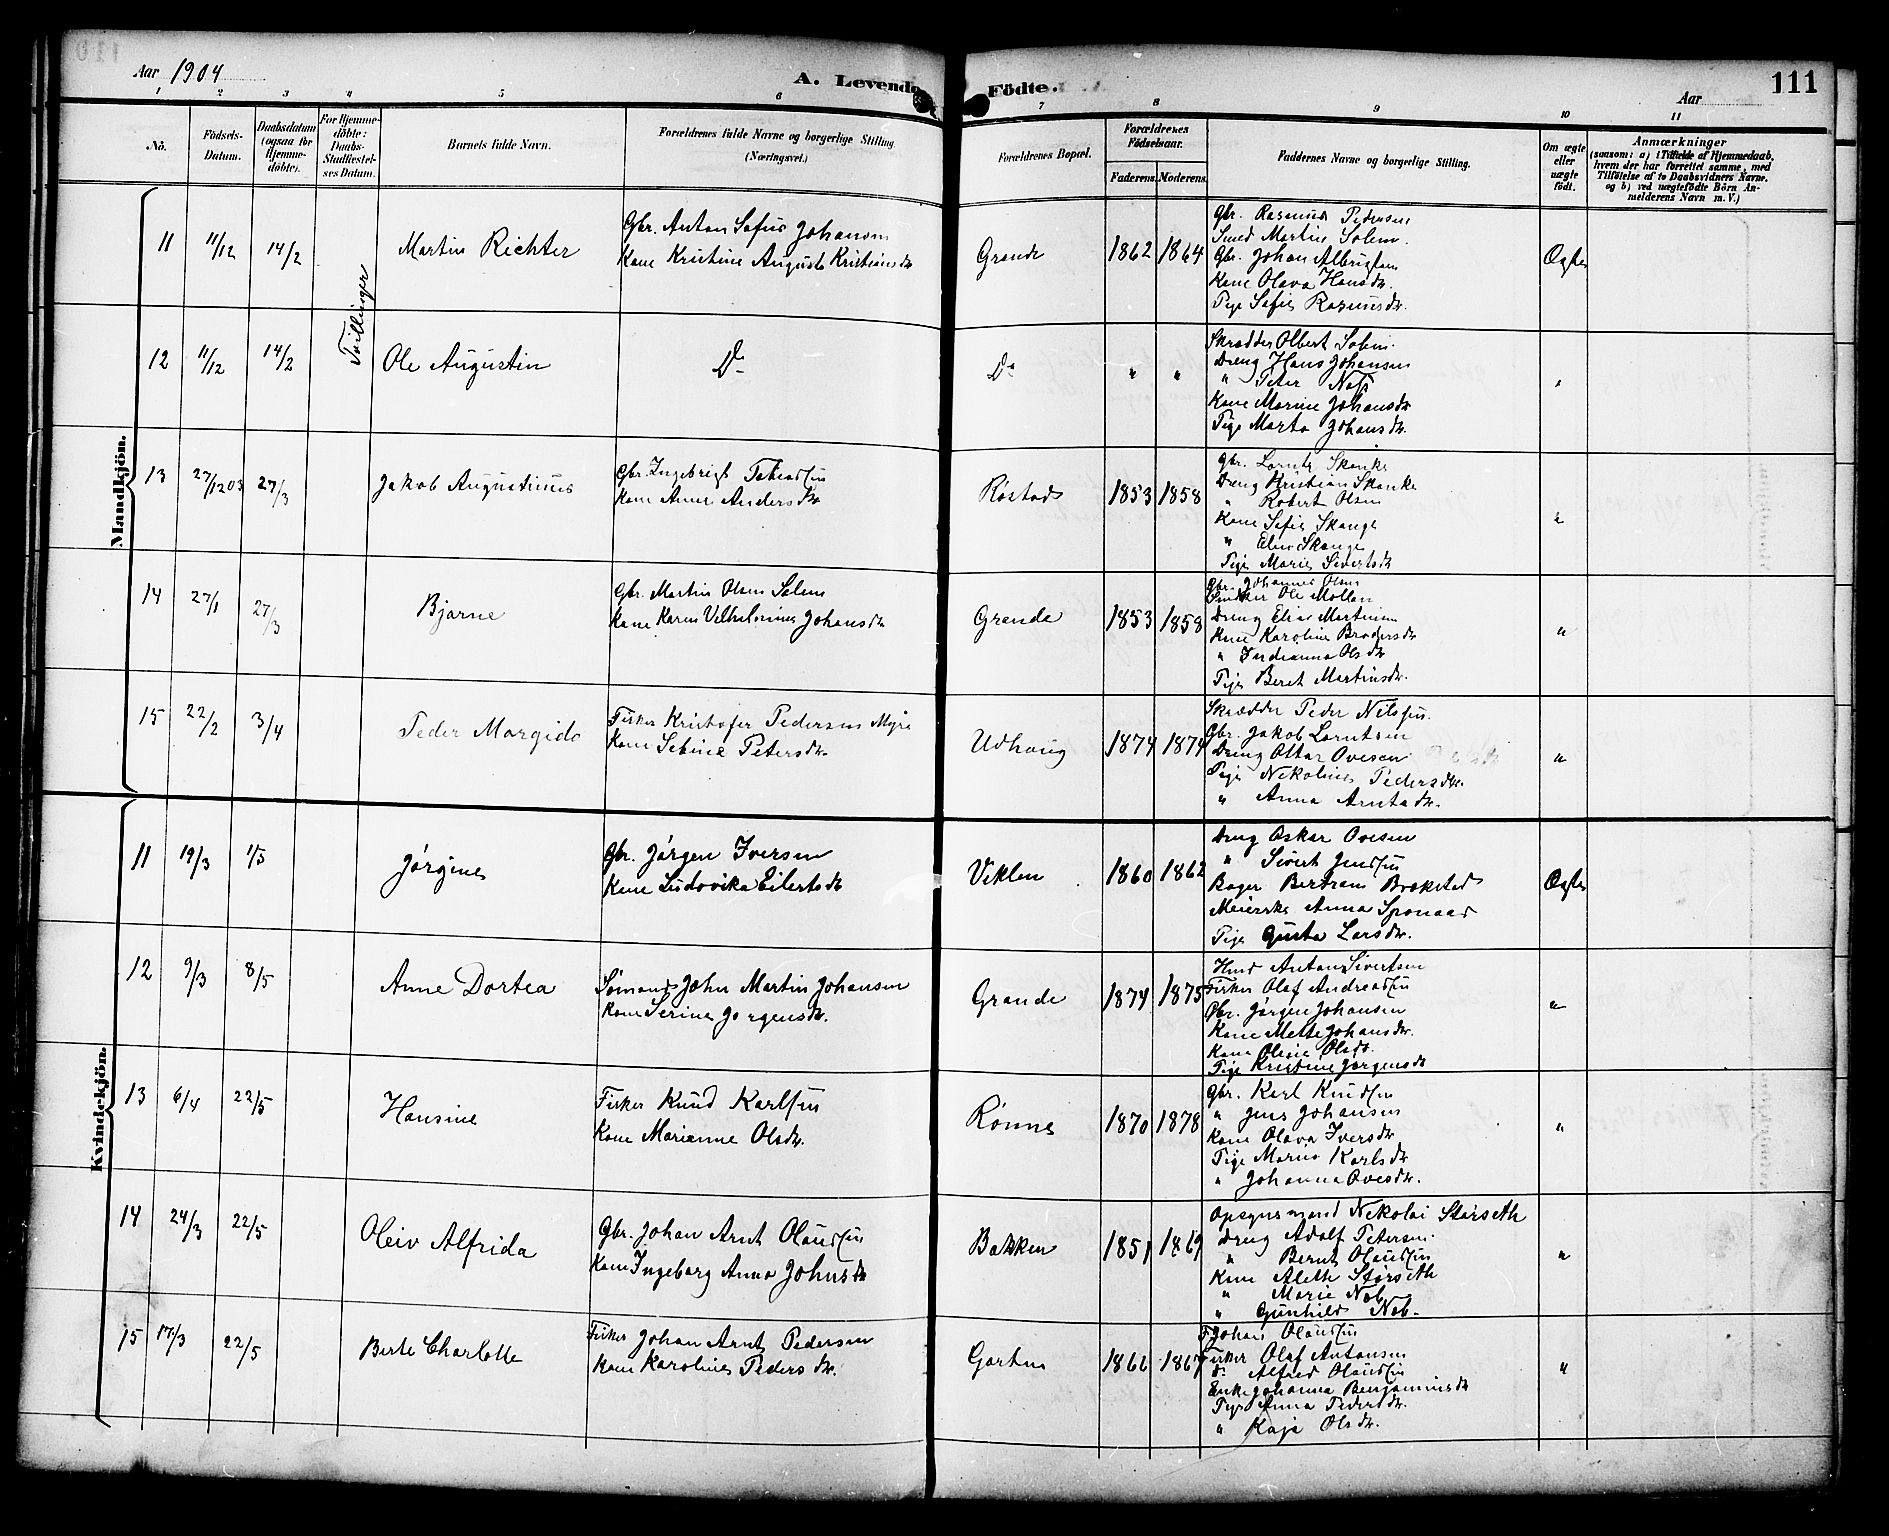 Aar 1904
A. Levende Födte.
Aar
111
1 2 3 4 5 6 7 8 9 10 11
No.
Födsels-Datum.
Daabsdatum (ogsaa for Hjemme-döbte).
For Hjemme-döbte: Daabs-Stadfæstel-ses Datum.
Barnets fulde Navn.
Forældrenes fulde Navne og borgerlige Stilling. (Næringsvei.)
Forældrenes Bopæl.
Forældrenes Födselsaar.
Faderens. Moderens.
Faddernes Navne og borgerlige Stilling.
Om ægte eller uægte födt.
Anmærkninger
(saasom: a) i Tilfælde af Hjemmedaab, hvem der har forrettet samme, med Tilföielse af to Daabsvidners Navne, og b) ved uægtefödte Börn An-melderens Navn m. V.)
Mandkjön.
Tvillinger
11 11/12 14/2 Martin Richter
Gbr. Anton Sefus Johansen
Kone Kristine Augusta Kristiansdr
Grande 1862 1864
Gbr. Rasmus Pedersen
Smed Martin Solem.
Gbr. Johan Albrigtsen
Kone Olava Hansdr.
Pige Sofie Rasmusdr.
Ægte
12 11/12 14/2 Ole Augustin
Do
Do " "
Skrædder Olbert Solem.
Dreng Hans Johansen
" Peter
Kone Marine Johansdr
Pige Marta Johansdr.
"
13 27/12 03 27/3 Jakob Augustinus
Gbr. Ingebrigt Tobiassen
Kone Anne Andersdr
Røstad 1853 1858
Gbr. Lornts Skanke
Dreng Kristian Skanke
" Robert Olsen
Kone Sofie Skange
" Elen Skange
Pige Marie Sivertsdr
"
14 27/1 27/3 Bjarne
Gbr. Martin Olsen Solem
Kone Karen Vilhelmine Johansdr
Grande 1853 1858
Gbr. Johannes Olsen
Ole Mollan
Dreng Elias Martinsen
Kone Karoline Brodersdr
" Indianna Olsdr
Pige Beret Martinsdr.
"
15 22/2 3/4 Peder Margido
Fisker Kristofer Pedersen Myre
Kone Sebine Petersdr.
Udhaug 1874 1874
Skrædder Peder Nilssen.
Gbr. Jakob Larntsen
Dreng Ottar Ovesen
Pige Nikoline Pedersdtr.
" Anna Arntsdr.
"
Kvindekjön.
11 19/3 1/5 Jørgine
Gbr. Jørgen Iversen
Kone Ludovika Eilertsdr
Viklem 1860 1862
Dreng Oskar Ovesen
" Sivert Jenssen
Bager Bertram Brækstad
Meierske Anna Sponaas
Pige Gusta Larsdr.
Ægte
12 9/3 8/5 Anne Dortea
Sømand John Martin Johansen
Kone Serine Jørgensdr.
Grande 1874 1875
Hmd Anton Sivertsen
Fisker Olaf Andreassen
Gbr. Jørgen Johansen
Kone Mette Johansdr.
Kone Olsdr.
Pige Kristine Jørgensdr
"
13 6/4 22/5 Hansine
Fisker Knud Karlsen
Kone Marianne Olsdr.
Rønne 1870 1878
Gbr. Karl Knudsen
" Jens Johansen
Kone Olava Iversdr
Pige Maria Karlsdr
" Johanna Ovesdr.
"
14 24/3 22/5 Oleiv Alfrida
Gbr. Johan Arnt Olaussen
Kone Ingeborg Anna Johnsdr
Bakken 1851 1869
Opsynsmand Nikolai Størseth
Dreng Adolf Petersen.
" Bernt Olaussen
Kone Alette Størseth
" Marie Neb
" Gunhild Neb.
"
15 17/3 22/5 Berte Charlotte
Fisker Johan Arnt Pedersen
Kone Karoline Pedersdr.
Garten 1866 1867
F. Johan Olaussen
Fisker Olaf Antonsen
do Alfred Olaussen
Enke Johanna Benjaminsdr
Pige Anna Pedersdr.
" Kaja Olsdr.
"